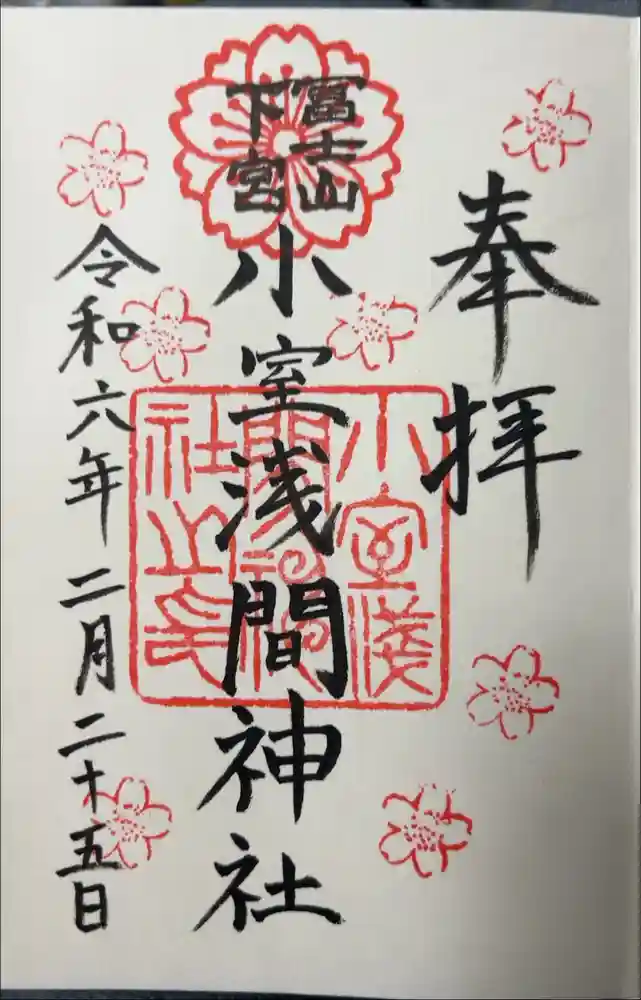 奉拝
冨士山
下宮
小室浅間神社
小室浅
間神
社之印
令和六年二月二十五日